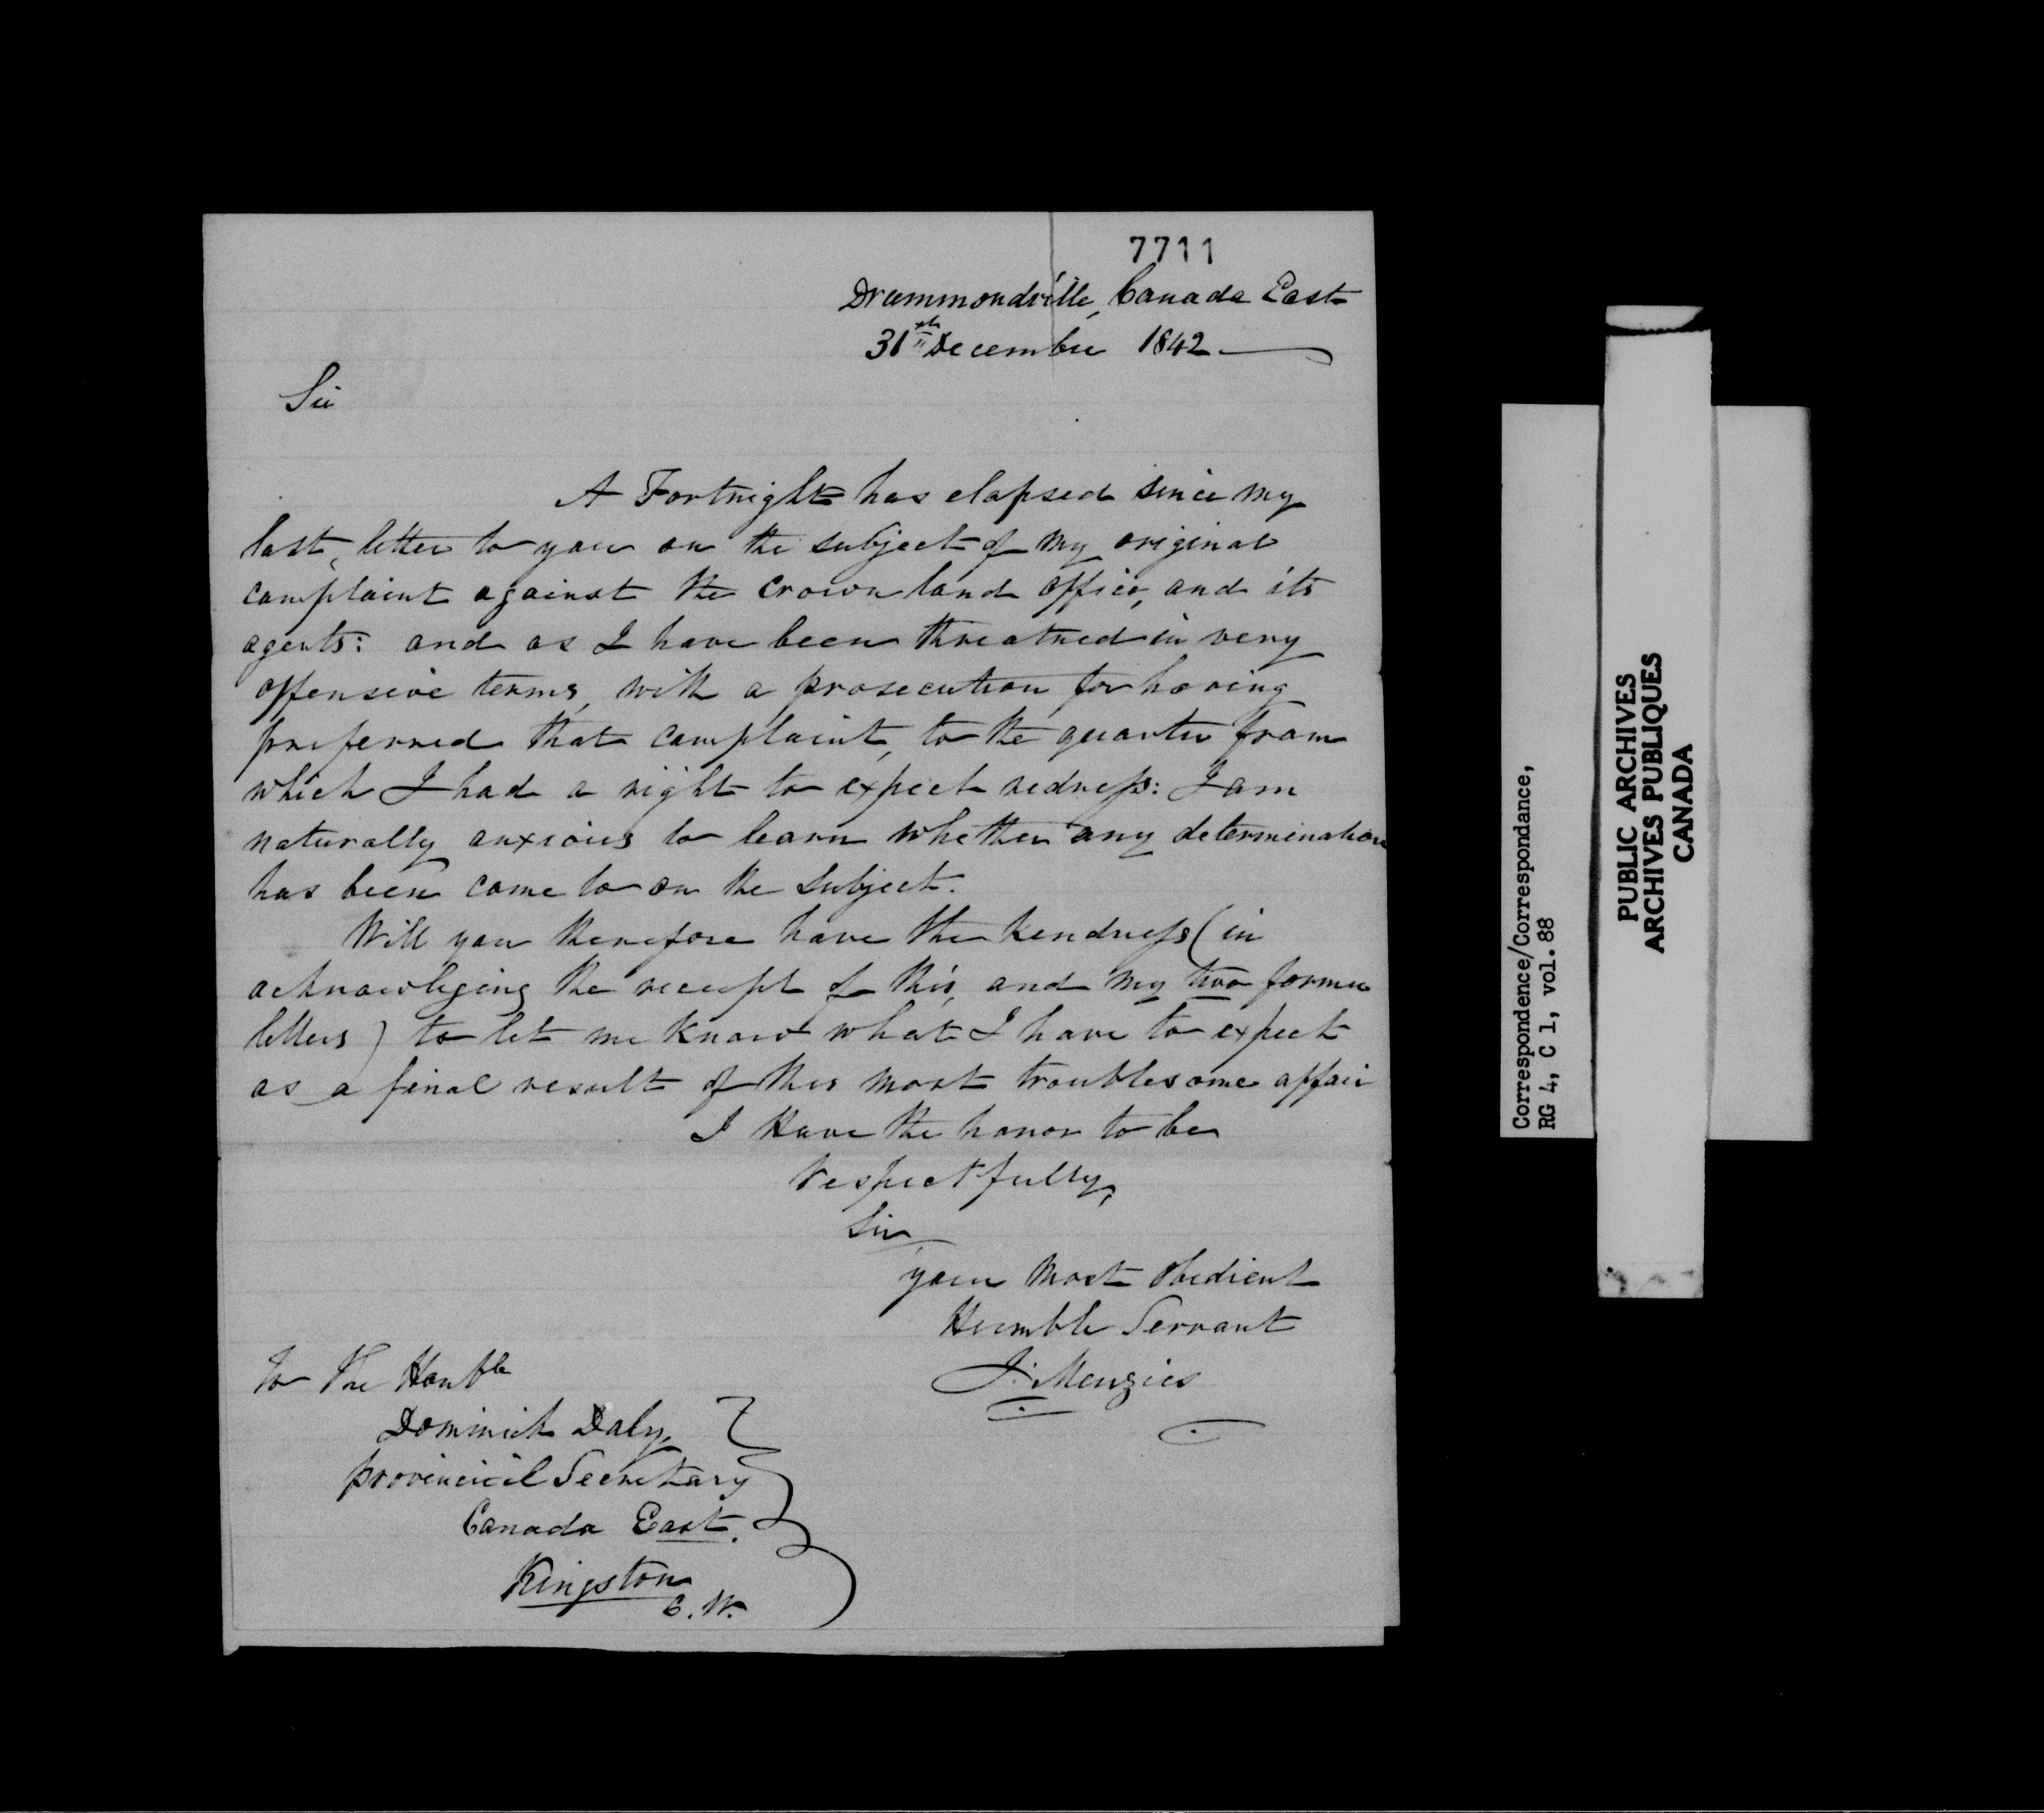 7711
Drummondville, Canada East
31st December 1842
Sir
A Fortnight has elapsed since my
last, letter to you on the subject of my original
complaint against the Crown land office, and its
agents: and as I have been threatned in very
offensive terms, with a prosecution for having
preferred that complaint, to the quarter from
which I had a right to expect redress: I am
naturally anxious to learn whether any determination
has been come to on the subject.
Will you therefore have the kindness (in
acknowliging the receipt of this, and my two former
letters) to let me know what I have to expect
as a final result of this most troublesome affair
I Have the honor to be
respectfully,
Sir
your most obedient
Humble Servant
J. Menzies
To The Honble
Dominick Daly,
provincial Secretary
Canada East.
Kingston
C.W.
Correspondence/Correspondance,
RG 4, C 1, vol. 88
PUBLIC ARCHIVES
ARCHIVES PUBLIQUES
CANADA